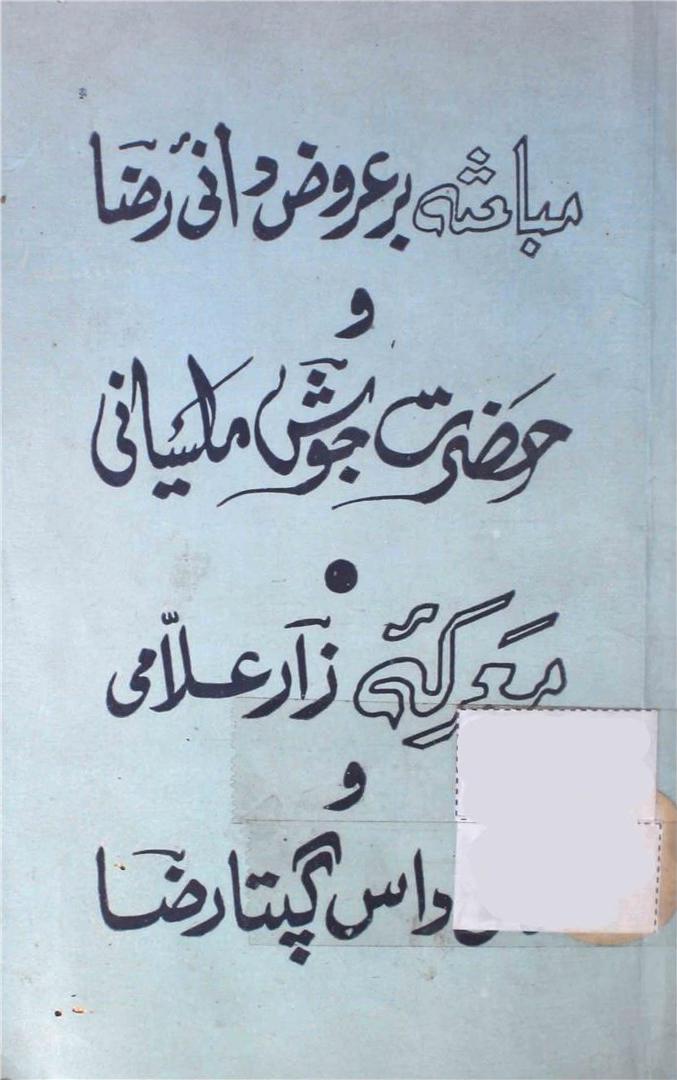 مباحثہ بر عروض دانیٔ رضاؔ
و
حضرت جوشؔ ملسیانی
معرکۂ زارؔ علّامی
و
داس گپتا رضاؔ